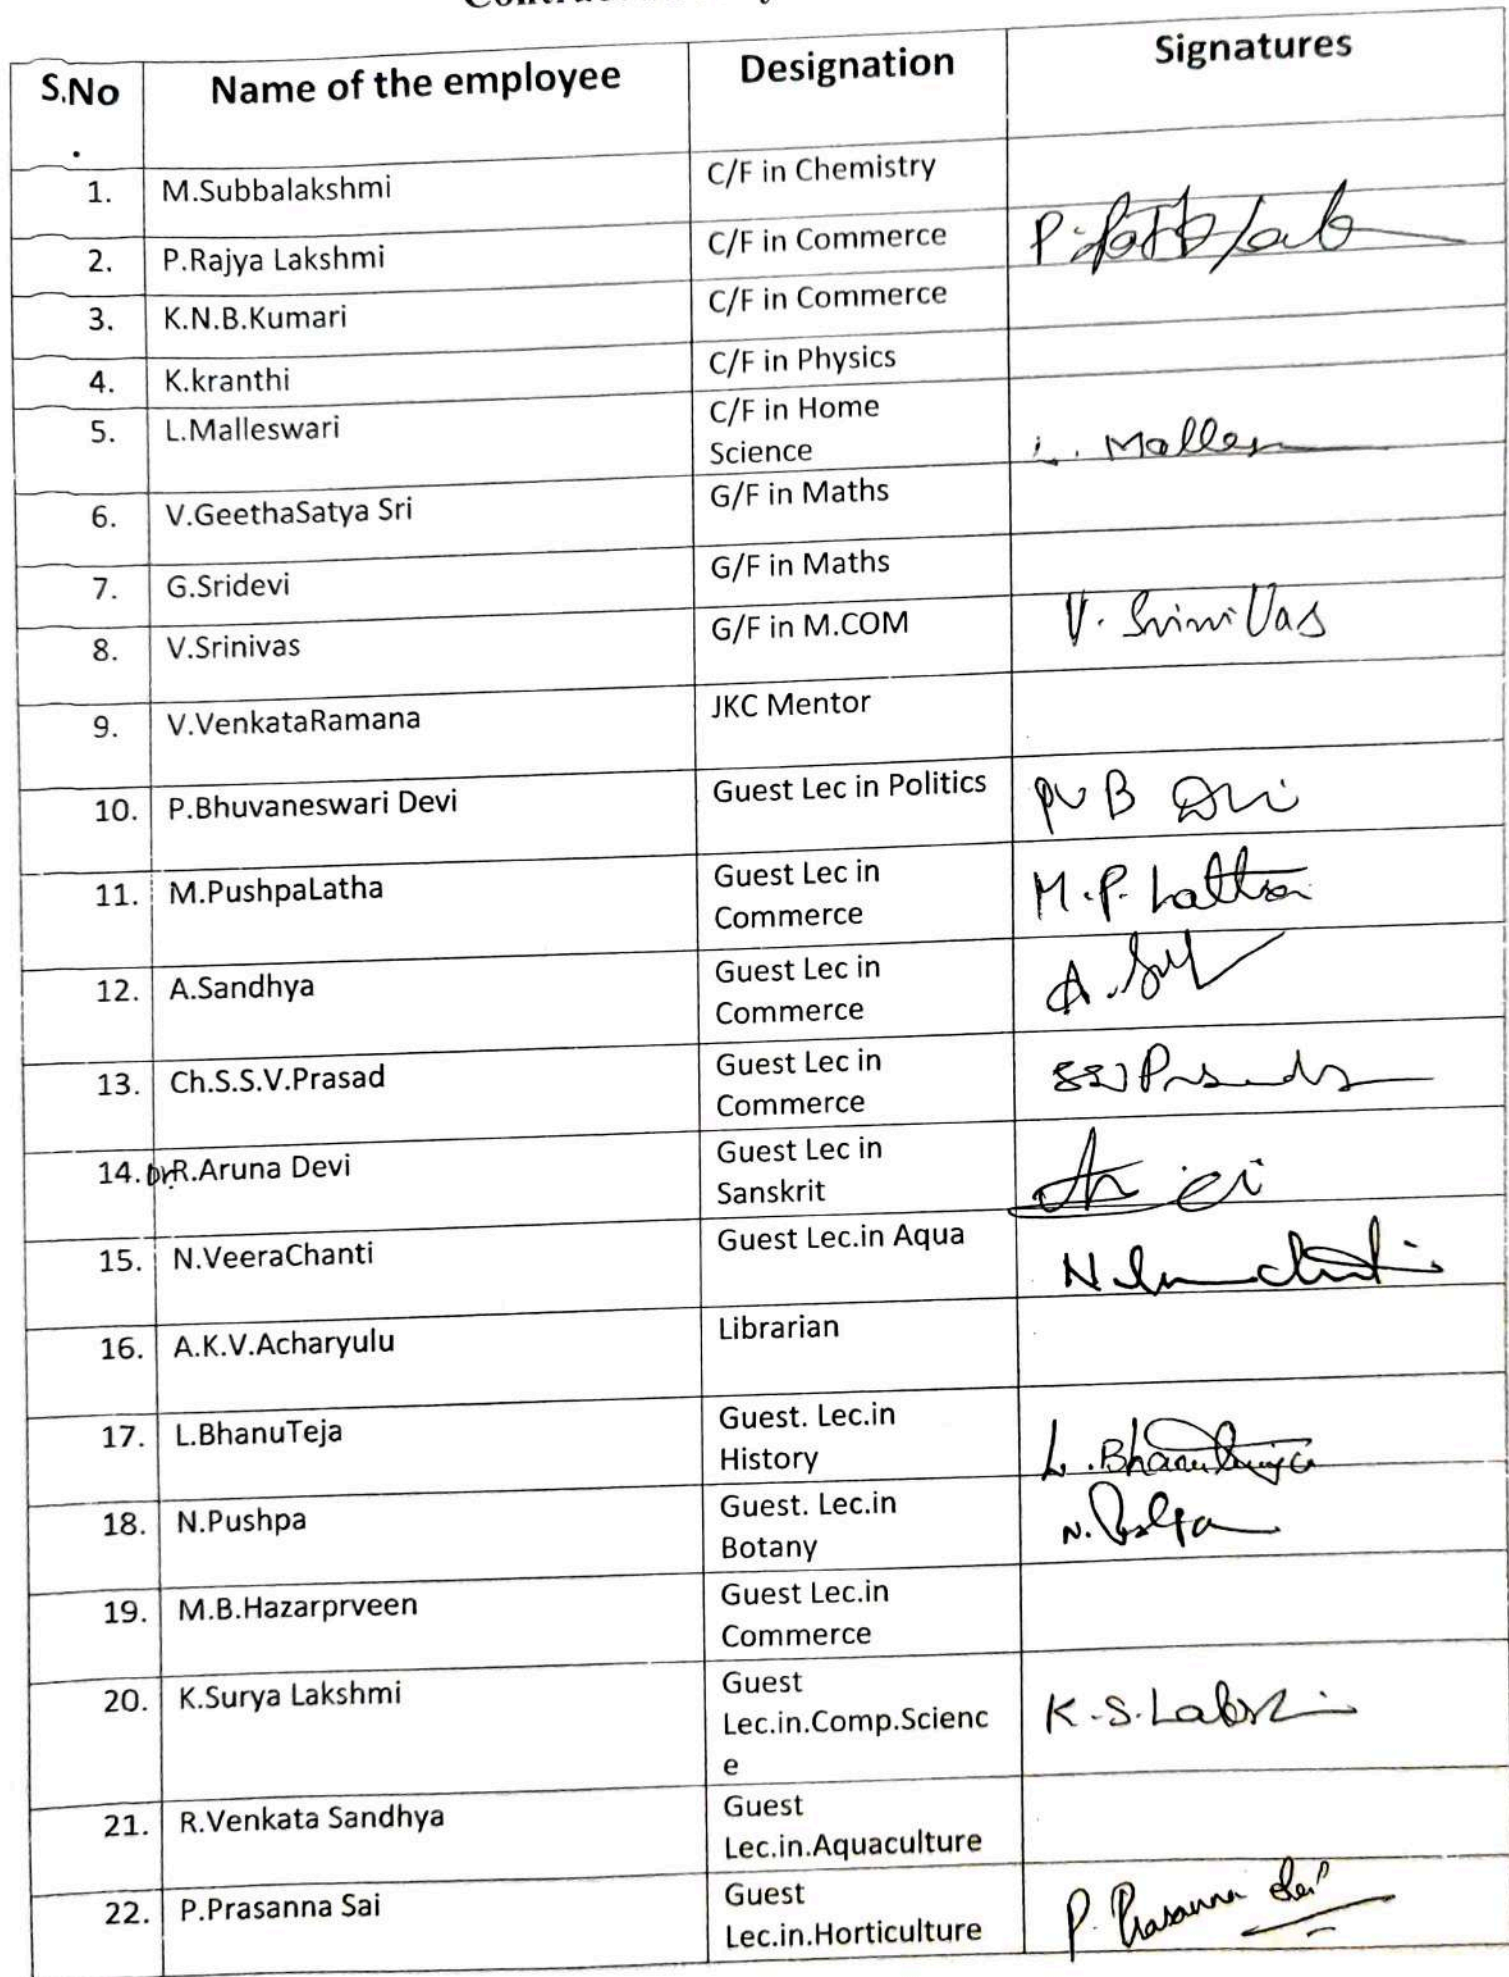 S.No Name of the employee Designation Signatures
.
1. M.Subbalakshmi C/F in Chemistry
2. P.Rajya Lakshmi C/F in Commerce
3. K.N.B.Kumari C/F in Commerce
4. K.kranthi C/F in Physics
5. L.Malleswari C/F in Home
Science L. Malles
6. V.GeethaSatya Sri G/F in Maths
7. G.Sridevi G/F in Maths
8. V.Srinivas G/F in M.COM V. SriniVas
9. V.VenkataRamana JKC Mentor
10. P.Bhuvaneswari Devi Guest Lec in Politics
11. M.PushpaLatha Guest Lec in M.P. Lattha
Commerce
12. A.Sandhya Guest Lec in
Commerce
13. Ch.S.S.V.Prasad Guest Lec in
Commerce
14. Dr. R.Aruna Devi Guest Lec in
Sanskrit
15. N.VeeraChanti Guest Lec.in Aqua
16. A.K.V.Acharyulu Librarian
17. L.BhanuTeja Guest. Lec.in
History L. Bhanu
18. N.Pushpa Guest. Lec.in
Botany
19. M.B.Hazarprveen Guest Lec.in
Commerce
20. K.Surya Lakshmi Guest
Lec.in.Comp.Scienc K.S.Lakshmi
e
21. R.Venkata Sandhya Guest
Lec.in.Aquaculture
22. P.Prasanna Sai Guest P. Prasanna Sai
Lec.in.Horticulture